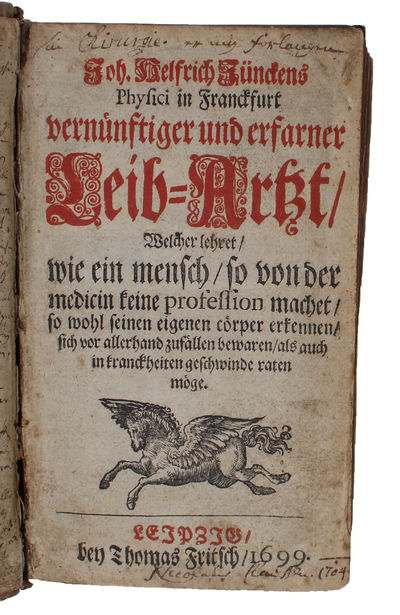 Joh. Helfrich Jünckens
Physici in Franckfurt
vernünftiger und erfarner
Leib=Artzt/
Welcher lehret/
wie ein mensch/ so von der
medicin keine profession machet/
so wohl seinen eigenen cörper erkennen/
sich vor allerhand zufällen bewaren/ als auch
in kranckheiten geschwinde raten
möge.
LEIPZIG/
bey Thomas Fritsch/ 1699.
1704